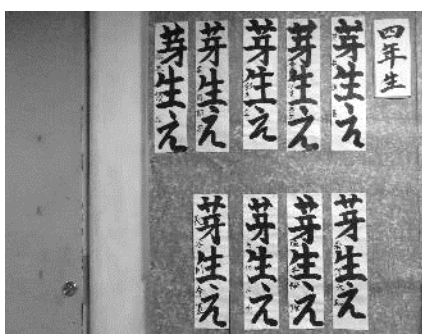 四年生
芽生え
芽生え
芽生え
芽生え
芽生え
芽生え
芽生え
芽生え
芽生え